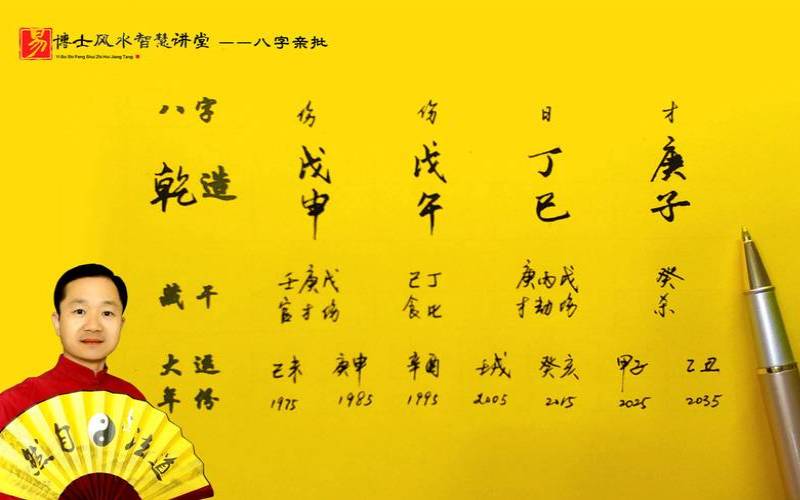 易 博士风水智慧讲堂 ——八字亲批
Yi Bo Shi Feng Shui Zhi Hui Jiang Tang
八字 伤 伤 日 才
乾造 戊 戊 丁 庚
申 午 巳 子
藏干 壬庚戊 己丁 庚丙戊 癸
官才伤 食比 才劫伤 杀
大运 己未 庚申 辛酉 壬戌 癸亥 甲子 乙丑
年份 1975 1985 1995 2005 2015 2025 2035
道法自然